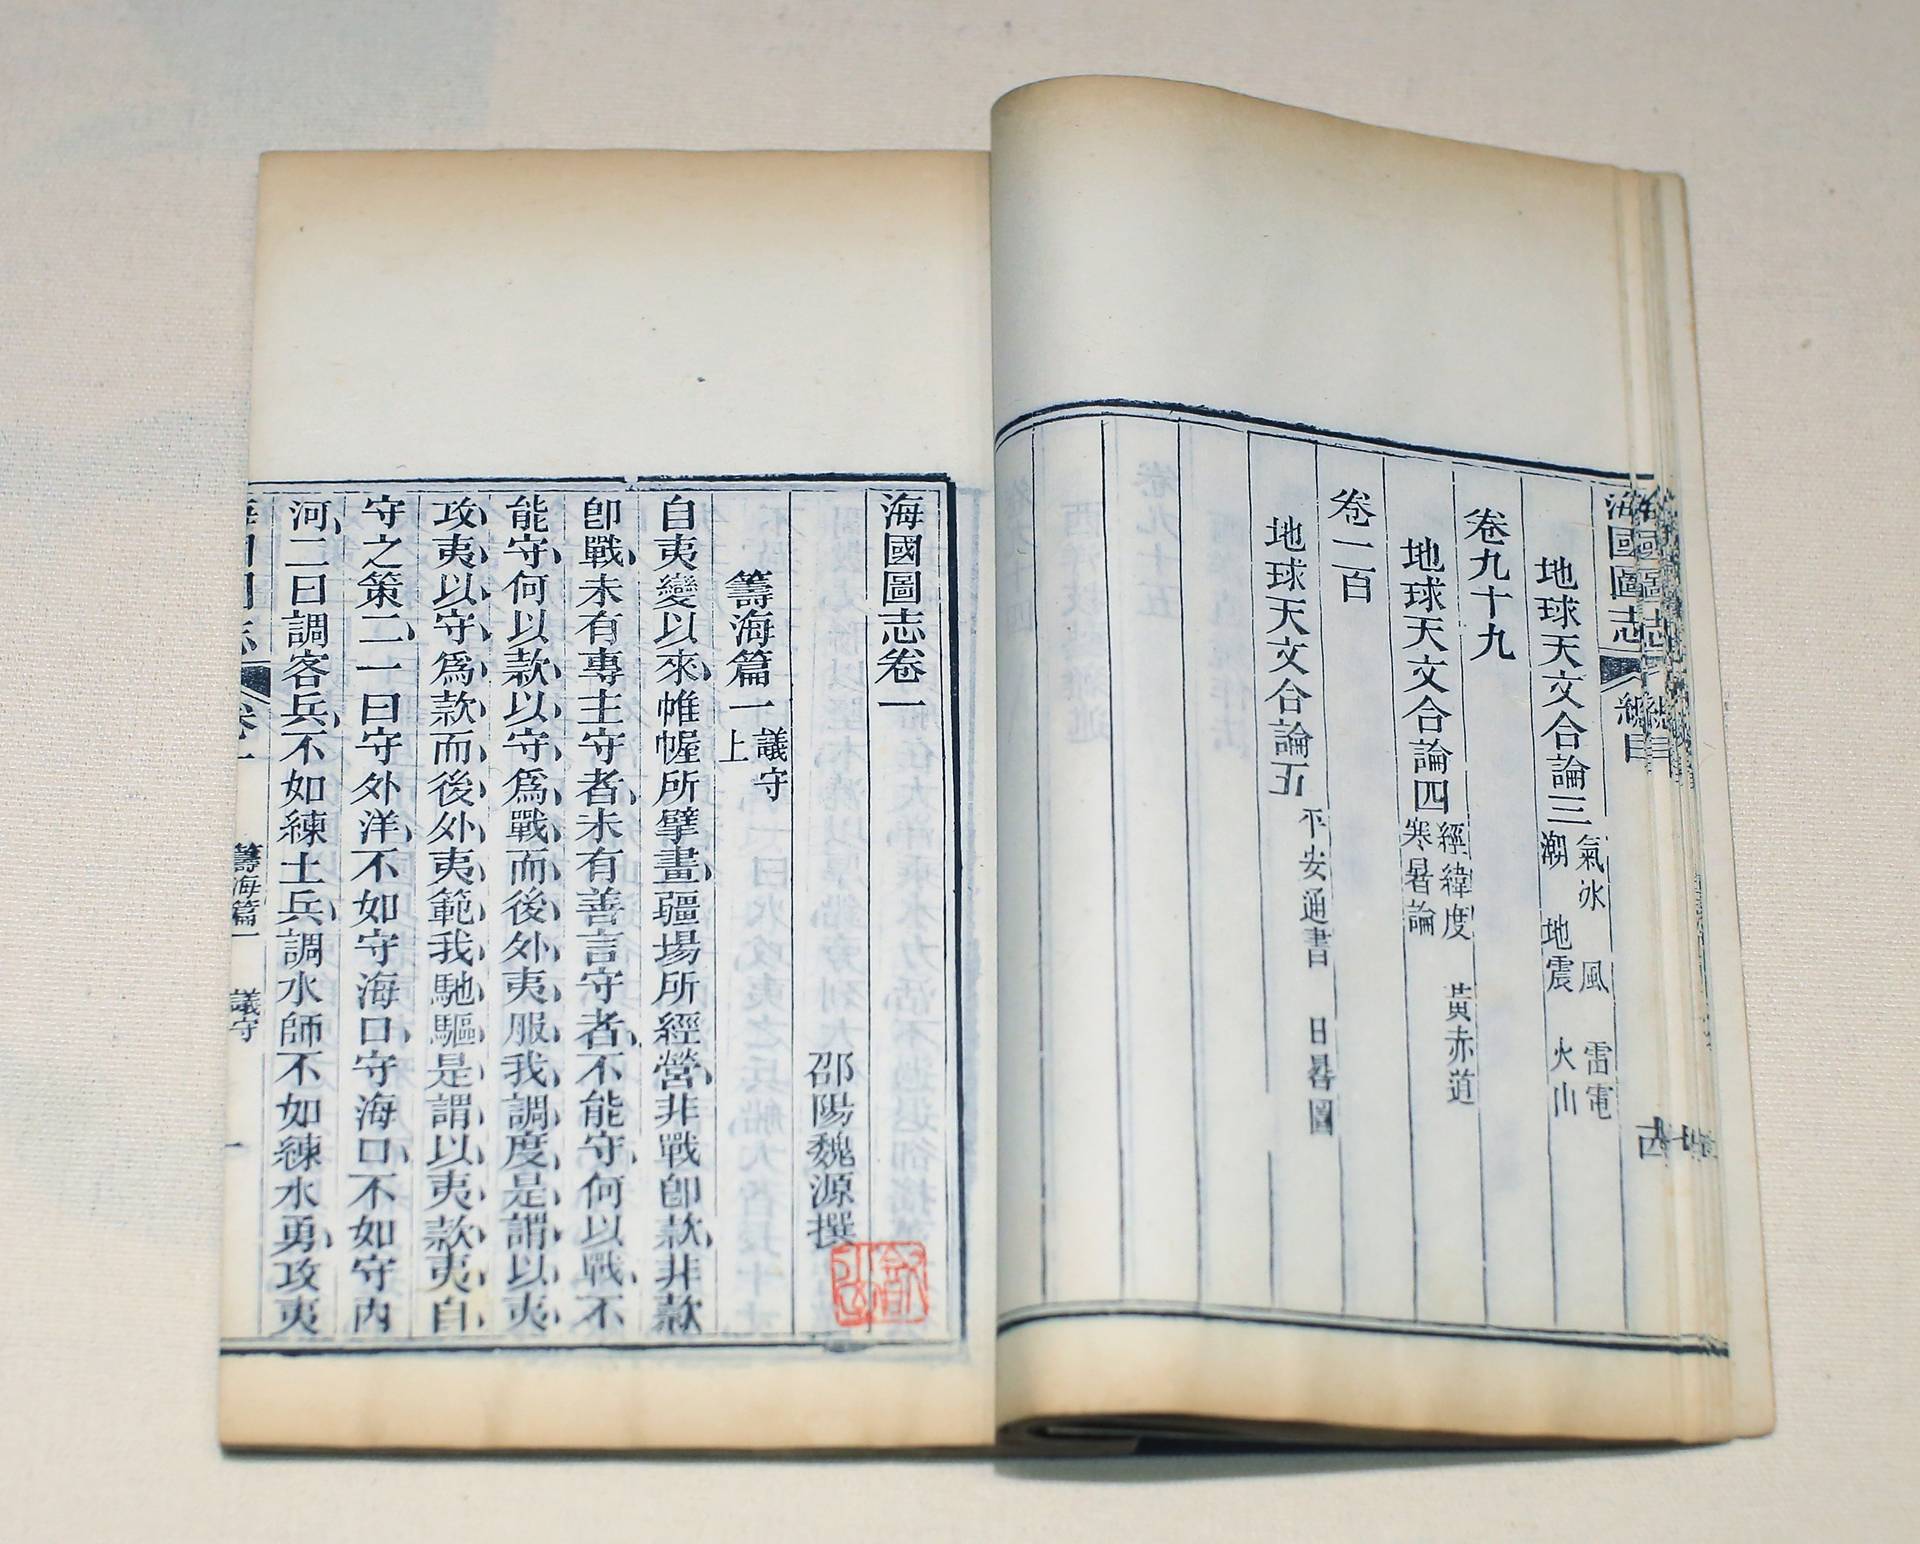 海國圖志
總目
地球天文合論三
氣 冰 風 雷電
潮 地震 火山
卷九十九
地球天文合論四
經緯度 黃赤道
寒暑論
卷一百
地球天文合論五
平安通書 日晷圖
海國圖志卷一
邵陽魏源撰
籌海篇一
議守
上
自夷變以來帷幄所擘畫疆場所經營非戰卽款非款
卽戰未有專主守者未有善言守者不能守何以戰不
能守何以款以守爲戰而後外夷服我調度是謂以夷
攻夷以守爲款而後外夷範我馳驅是謂以夷款夷自
守之策二一曰守外洋不如守海口守海口不如守內
河二曰調客兵不如練土兵調水師不如練水勇攻夷
卷一
籌海篇一 議守
一